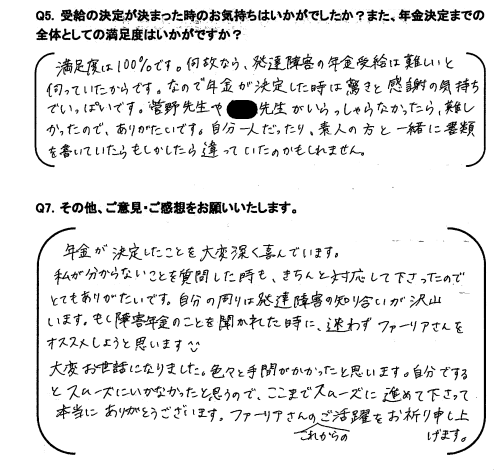 Q5. 受給の決定が決まった時のお気持ちはいかがでしたか？また、年金決定までの
全体としての満足度はいかがですか？
満足度は100%です。何故なら、発達障害の年金受給は難しいと
伺っていたからです。なので年金が決定した時は驚きと感謝の気持ち
でいっぱいです。菅野先生や 先生がいらっしゃらなかったら、難し
かったので、ありがたいです。自分一人だったり、素人の方と一緒に書類
を書いていたらもしかしたら違っていたのかもしれません。
Q7. その他、ご意見・ご感想をお願いいたします。
年金が決定したことを大変深く喜んでいます。
私が分からないことを質問した時も、きちんと対応して下さったので
とてもありがたいです。自分の周りは発達障害の知り合いが沢山
います。もし障害年金のことを聞かれた時に、迷わずファーリアさんを
オススメしようと思います
大変お世話になりました。色々と手間がかかったと思います。自分でする
とスムーズにいかなかったと思うので、ここまでスムーズに進めて下さって
本当にありがとうございます。ファーリアさんのご活躍をお祈り申し上
これからの げます。